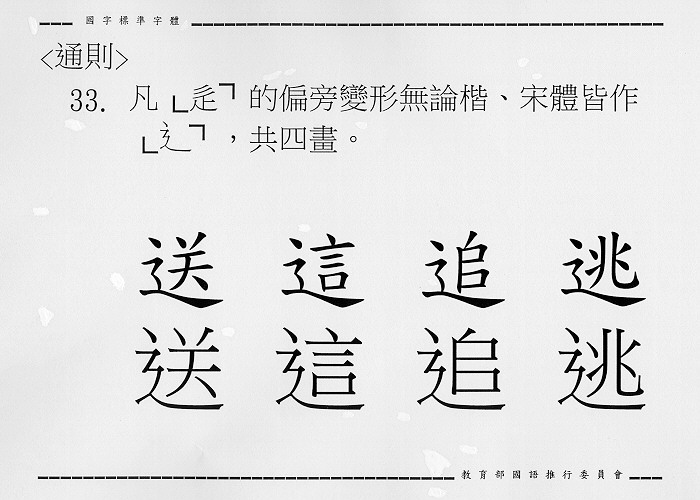 國字標準字體
<通則>
33. 凡「辵」的偏旁變形無論楷、宋體皆作
「辶」，共四畫。
送 這 追 逃
送 這 追 逃
教育部國語推行委員會